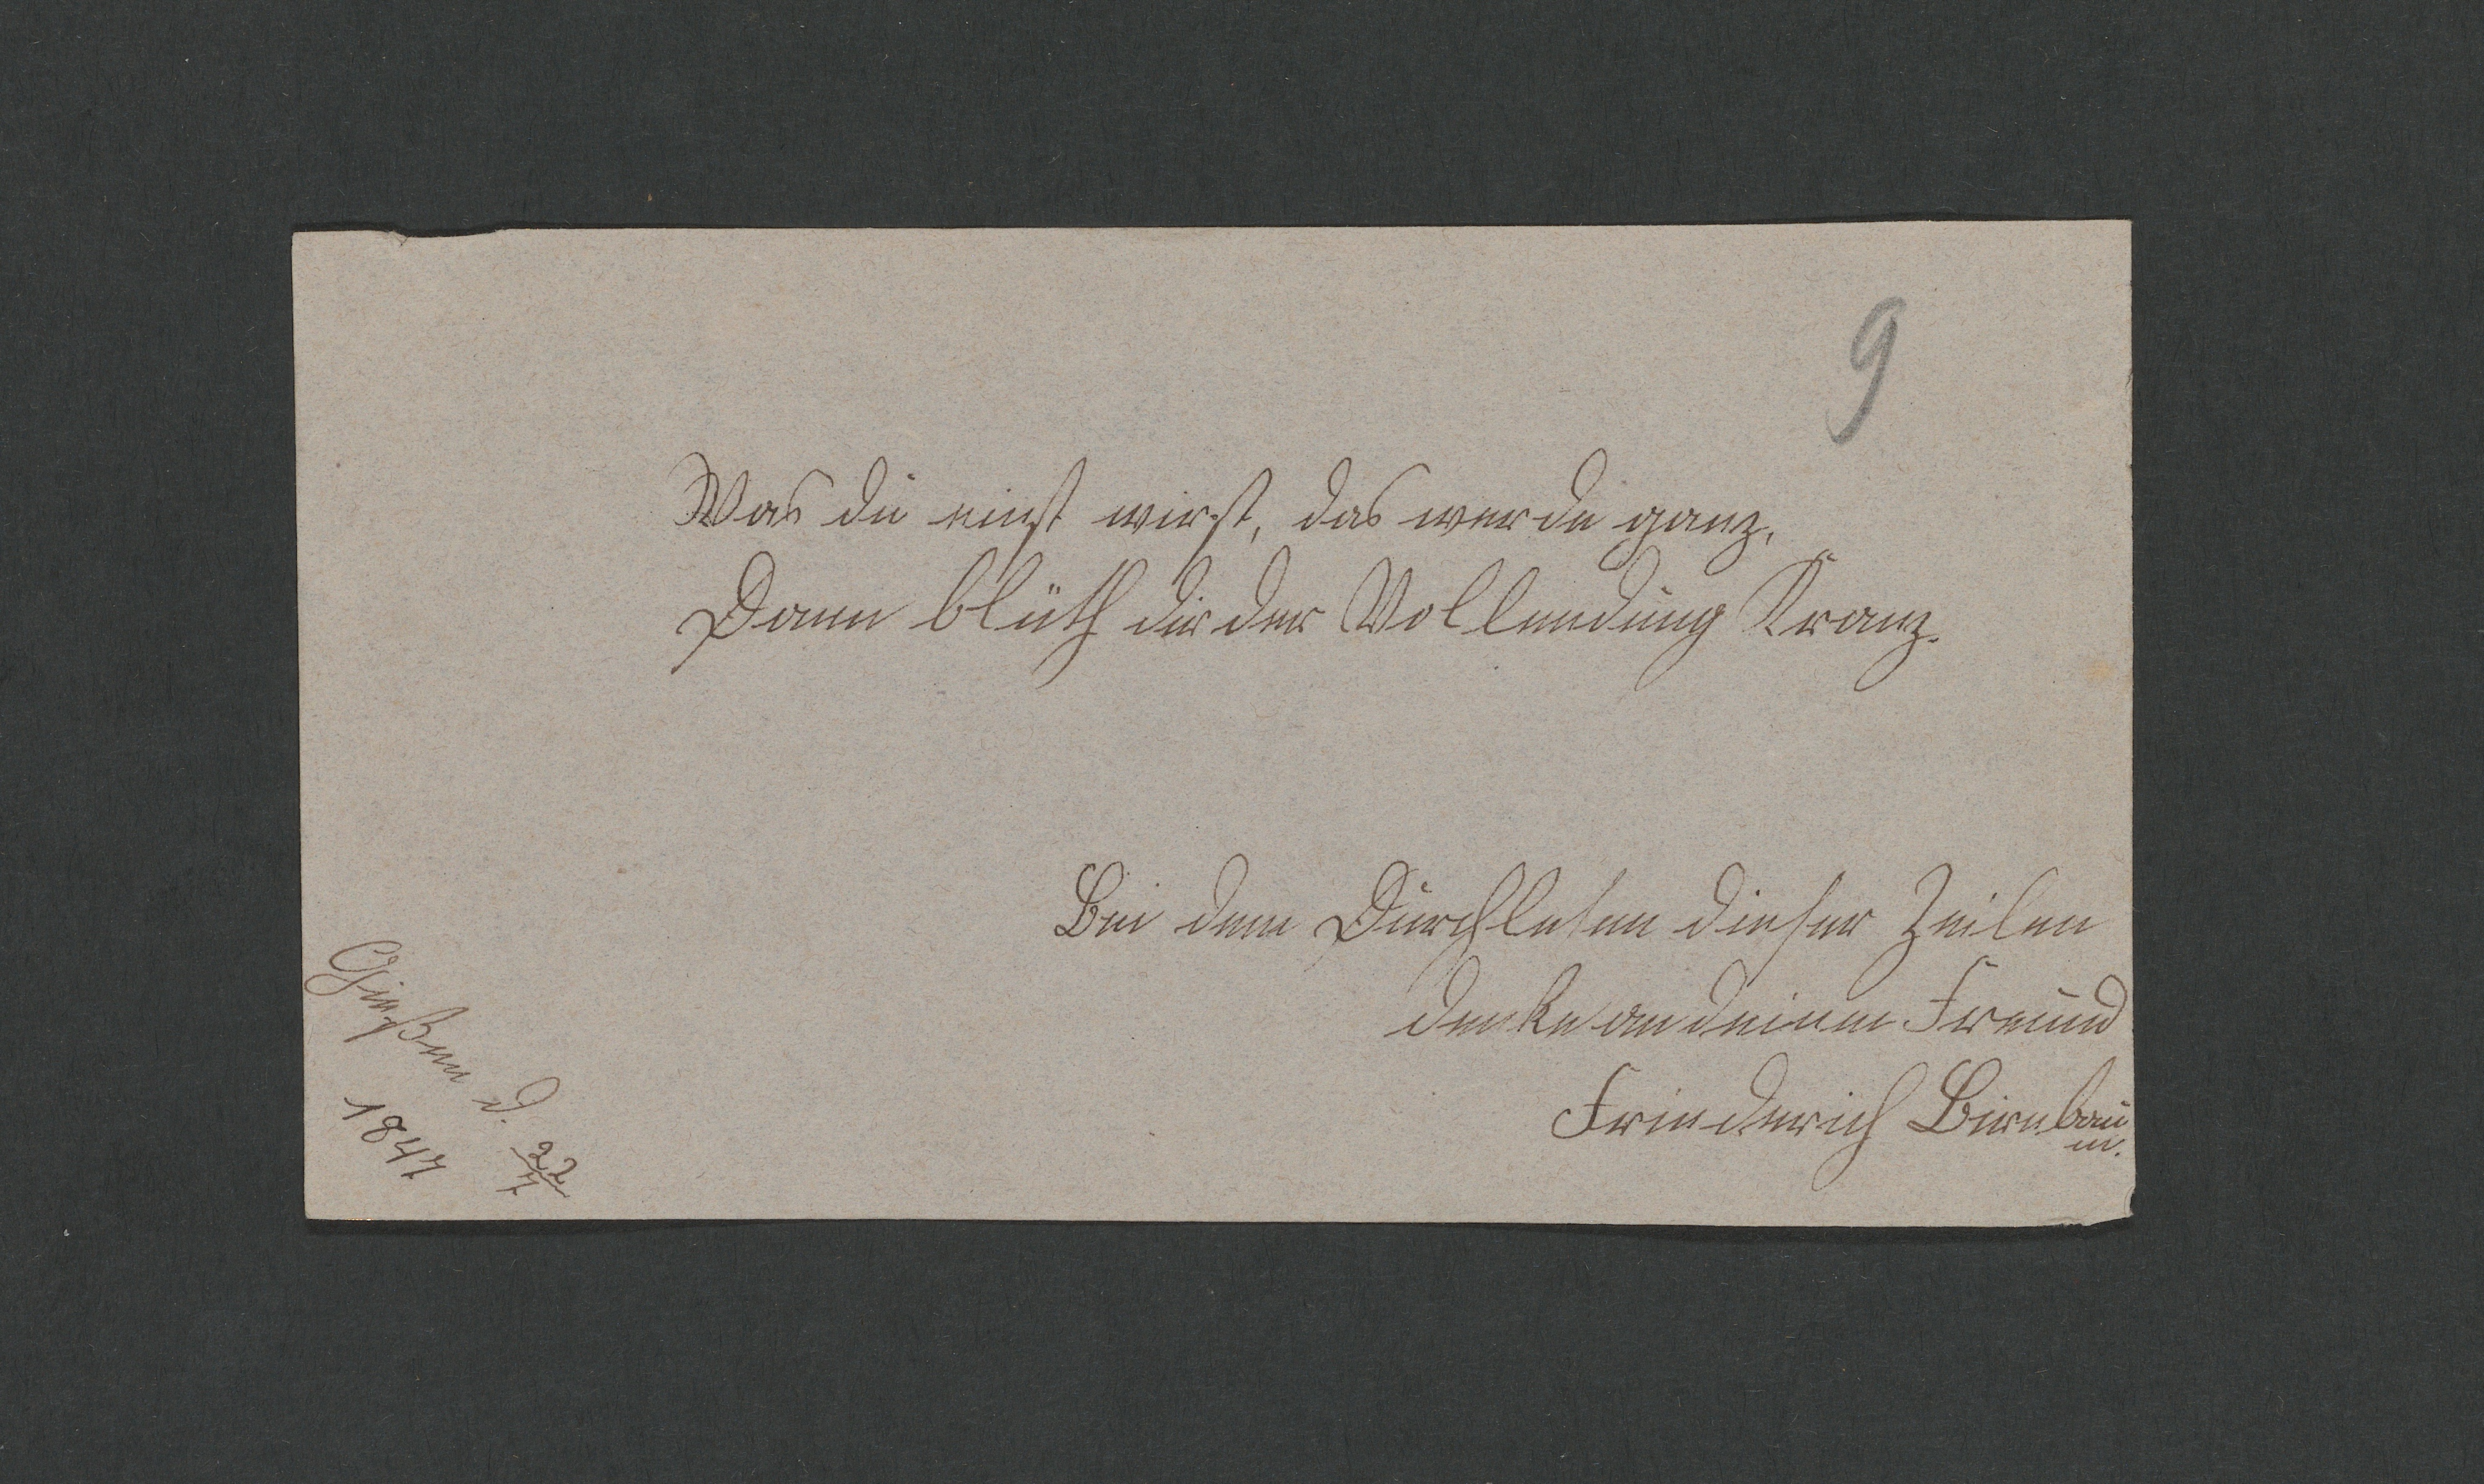 9
Was du einst wirst, das werde ganz,
Dann blüth dir der Vollendung Kranz.
Bei dem Durchlesen dieser Zeilen
denke an deinen Freund
Friederich Birnbau
m.
Gießen d. 22/7
1847